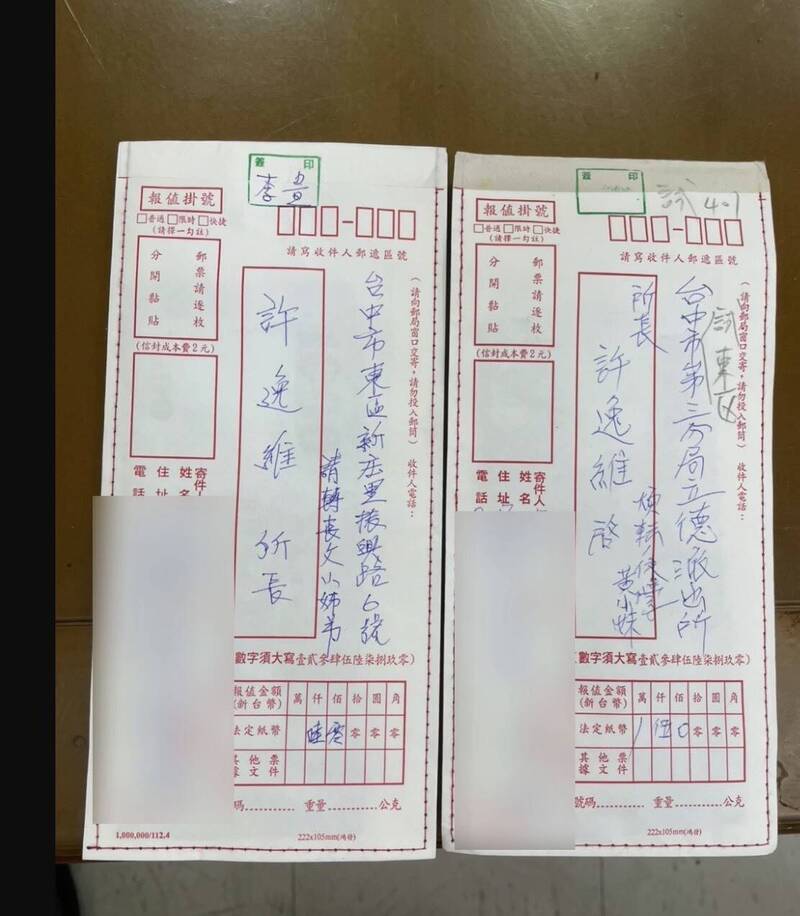 簽 印
李貴
報值掛號
□普通 □限時 □快捷
(請擇一勾註)
郵票請逐枚
分開黏貼
(信封成本費2元)
請寫收件人郵遞區號
(請向郵局窗口交寄，請勿投入郵筒) 收件人電話：
台中市東區新庄里振興路6號
請轉長文小姊弟
許逸維 所長
寄件人
姓名
住址
電話
數字須大寫壹貳參肆伍陸柒捌玖零)
報值金額(新台幣) 萬 仟 佰 拾 圓 角
法定紙幣 陸 零 零 零 零
其他票據文件
號碼 重量 公克
1,000,000/112.4
222x105mm(鴻發)
簽 印
4.1
報值掛號
□普通 □限時 □快捷
(請擇一勾註)
郵票請逐枚
分開黏貼
(信封成本費2元)
請寫收件人郵遞區號
(請向郵局窗口交寄，請勿投入郵筒) 收件人電話：
試東区
台中市第三分局立德派出所
所長
許逸維 啓
煩転
黃小妹
寄件人
姓名
住址
電話
數字須大寫壹貳參肆伍陸柒捌玖零)
報值金額(新台幣) 萬 仟 佰 拾 圓 角
法定紙幣 1 伍 0 零 零 零
其他票據文件
號碼 重量 公克
222x105mm(鴻發)